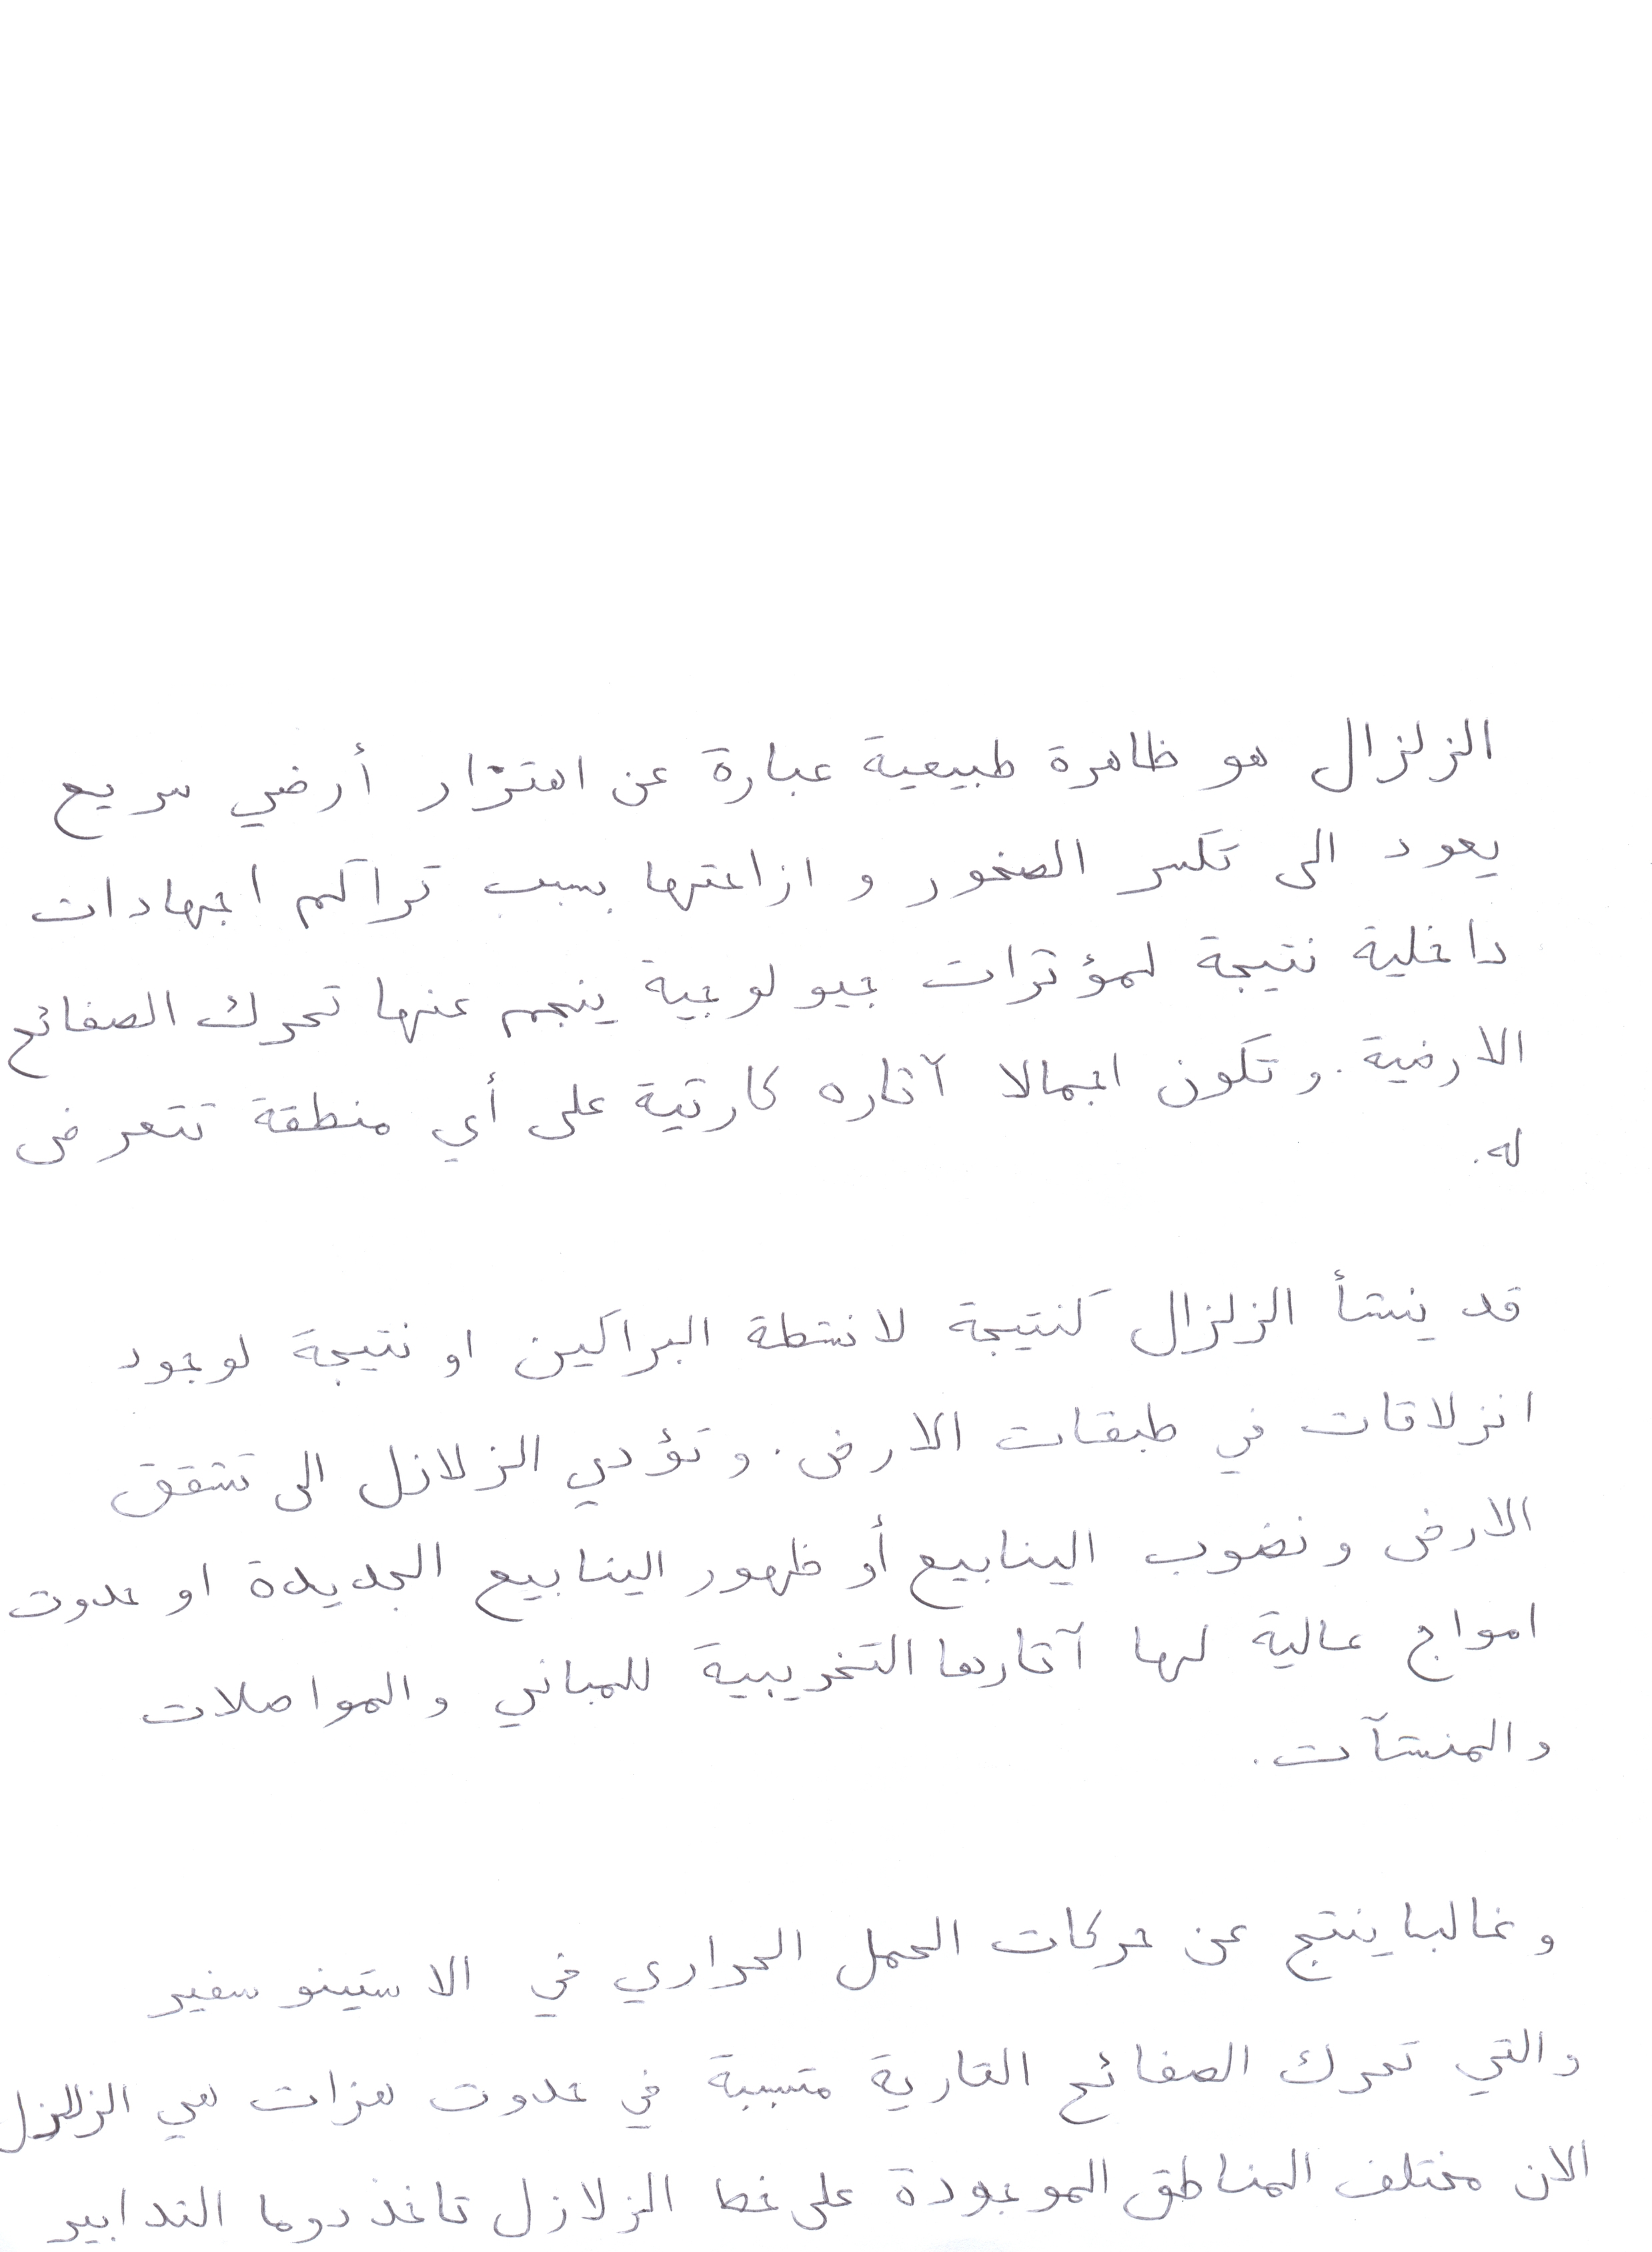 الزلزال هو ظاهرة طبيعية عبارة عن اهتزار أرضي سريع
يعود الى تكسر الصخور و ازاحتها بسبب تراكم اجهادات
داخلية نتيجة لمؤثرات جيولوجية ينجم عنها تحرك الصفائح
الارضية. و تكون اجمالا آثاره كارثية على أي منطقة تتعرض
له.
قد ينشأ الزلزال كنتيجة لانشطة البراكين او نتيجة لوجود
انزلاقات في طبقات الارض. وتؤدي الزلازل الى تشقق
الارض ونضوب الينابيع أو ظهور الينابيع الجديدة او حدوث
امواج عالية لها آثارها التخريبية للمباني والمواصلات
والمنشآت.
وغالبا ينتج عن حركات الحمل الحراري في الاستينوسفير
والتي تحرك الصفائح القارية متسببة في حدوث هزات هي الزلازل
الان مختلف المناطق الموجودة على خط الزلازل تاخذ دوما التدابير